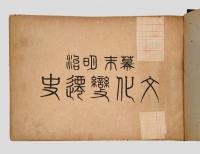 幕末明治
文化變遷史